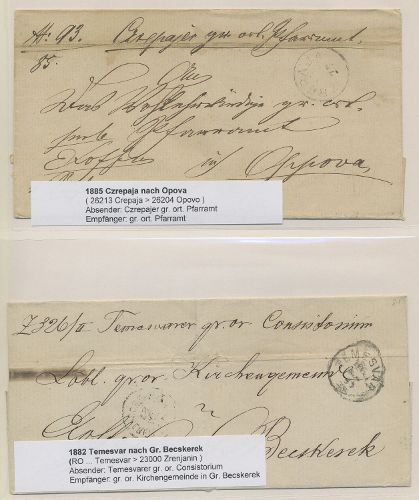 No. 93. Czrepajer gr. ort. Pfarramt.
85.
An
Das
gr. ort.
serb. Pfarramt
in Oppova
1885 Czrepaja nach Opova
( 26213 Crepaja > 26204 Opovo )
Absender: Czrepajer gr. ort. Pfarramt
Empfänger: gr. ort. Pfarramt
Z 326/II Temesvarer gr. or. Consistorium
TEMESVÁR
Löbl. gr. or. Kirchengemeinde
Becskerek
1882 Temesvar nach Gr. Becskerek
(RO ... Temesvar > 23000 Zrenjanin )
Absender: Temesvarer gr. or. Consistorium
Empfänger: gr. or. Kirchengemeinde in Gr. Becskerek